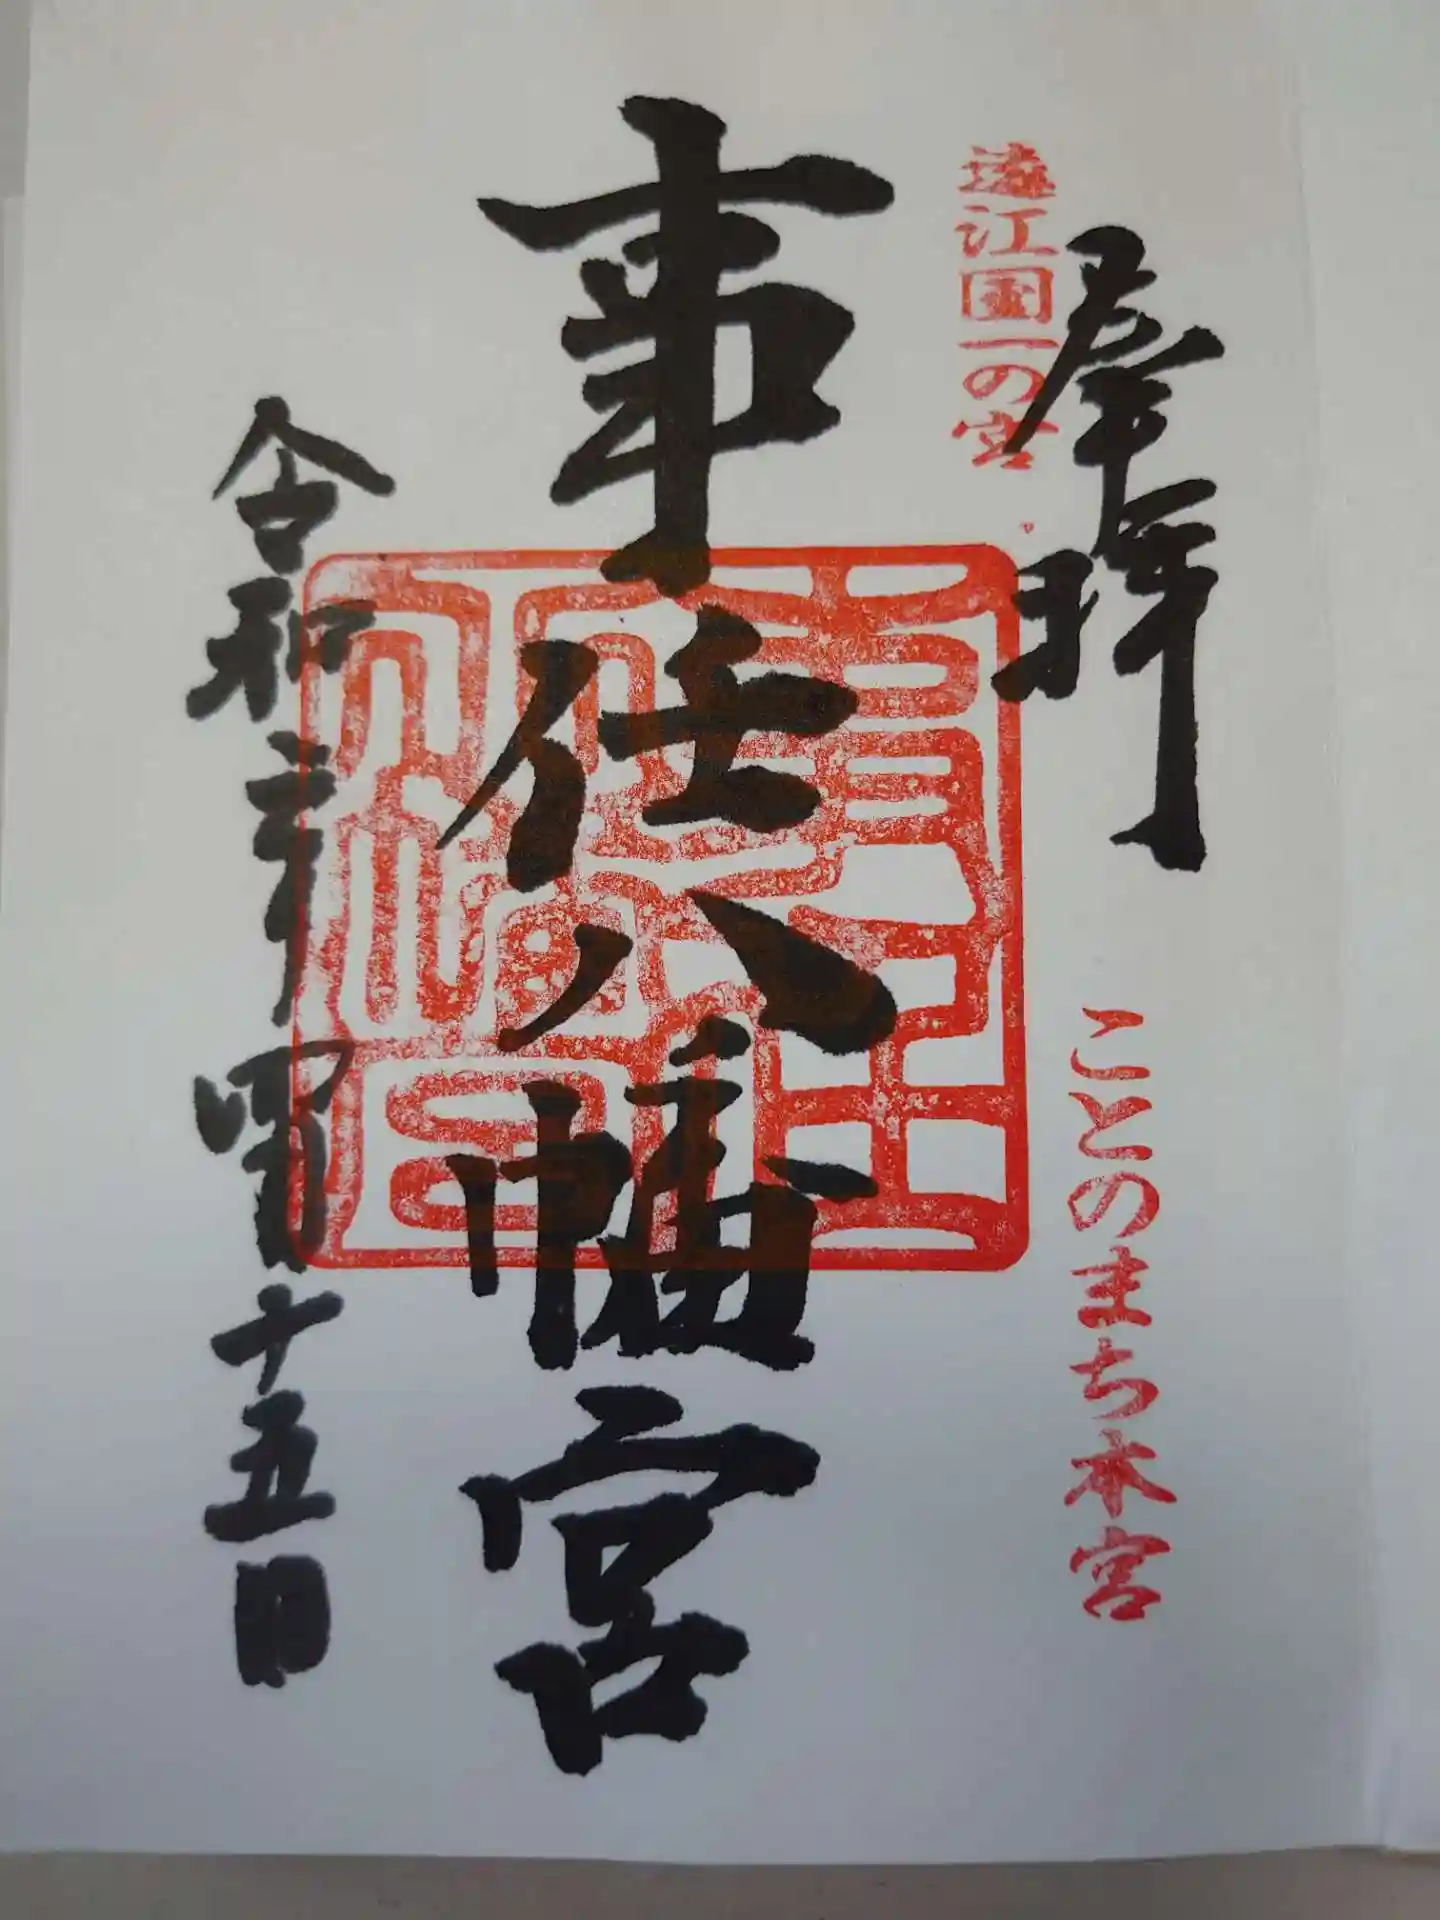 奉拝
ことのまち本宮
遠江国一の宮
事任八幡宮
令和三年四月十五日